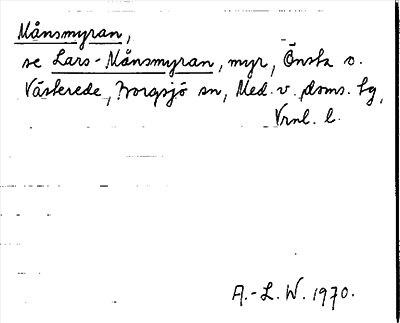 Månsmyran,
se Lars-Månsmyran, myr, Önsta o.
Västerede, Borgsjö sn, Med. v. doms. tg,
Vrnl. l.
A.-L. W. 1970.